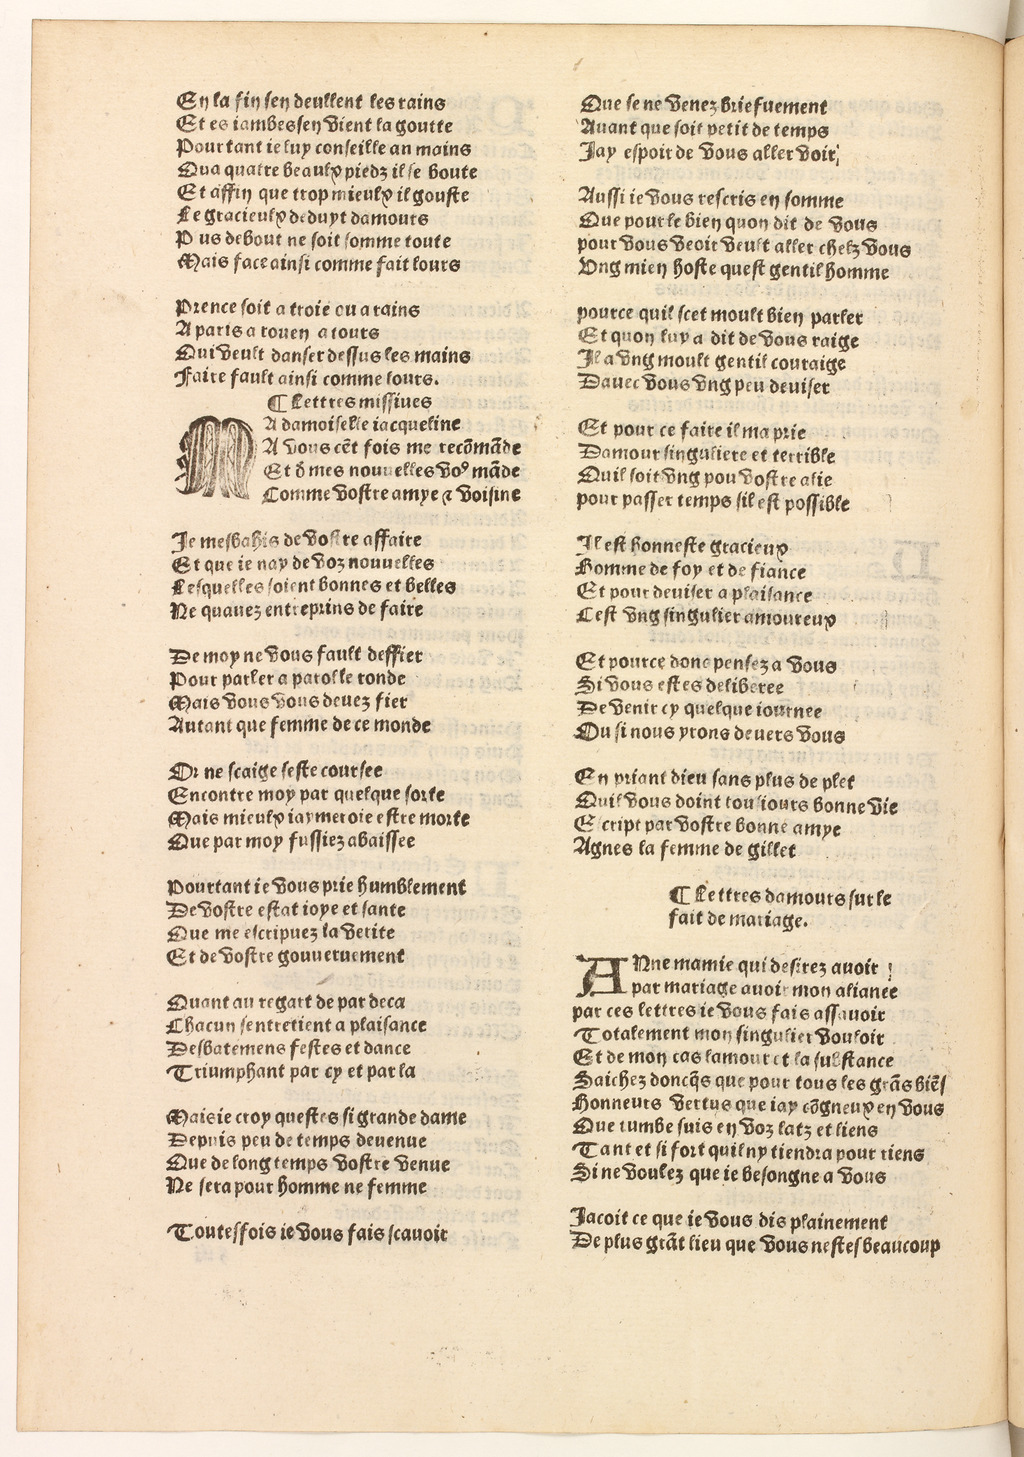 En la fin sen deullent les rains
Et es iambes sen vient la goutte
Pour tant ie luy conseille au mains
Qua quatre beaulx piedz il se boute
Et affin que trop mieulx il gouste
Le gracieulx deduyt damours
P us debout ne soit somme toute
Mais face ainsi comme fait lours

Prence soit a troie ou a rains
A paris a rouen a tours
Qui veult danser dessus les mains
Faire fault ainsi comme lours.
¶ Lettres missiues
MA damoiselle iacqueline
A vous cēt fois me recōmāde
Et d̄ mes nouuelles voꝰ māde
Comme vostre amye ⁊ voisine

Je mesbahis de vostre affaire
Et que ie nay de voz nouuelles
Lesquelles soient bonnes et belles
Ne quauez entreprins de faire

De moy ne vous fault deffier
Pour parler a parolle ronde
Mais vous vous deuez fier
Autant que femme de ce monde

Or ne scaige seste coursee
Encontre moy par quelque sorte
Mais mieulx iaymeroie estre morte
Que par moy fussiez abaissee

Pourtant ie vous prie humblement
De vostre estat ioye et sante
Que me escripuez la verite
Et de vostre gouuernement

Quant au regart de par deca
Chacun sentretient a plaisance
Desbatemens festes et dance
Triumphant par cy et par la

Mais ie croy questes si grande dame
Depuis peu de temps deuenue
Que de long temps vostre venue
Ne sera pour homme ne femme

Toutesfois ie vous fais scauoir
Que se ne venez briefuement
Auant que soit petit de temps
Jay espoir de vous aller voir

Aussi ie vous rescris en somme
Que pour le bien quon dit de vous
pour vous veoir veult aller chetz vous
Vng mien hoste quest gentil homme

pource quil scet moult bien parler
Et quon luy a dit de vous raige
Il a vng moult gentil couraige
Dauec vous vng peu deuiser

Et pour ce faire il ma prie
Damour singuliere et terrible
Quil soit vng pou vostre alie
pour passer temps sil est possible

Il est honneste gracieux
Homme de foy et de fiance
Et pour deuiser a plaisance
Cest vng singulier amoureux

Et pource donc pensez a vous
Si vous estes deliberee
De venir cy quelque iournee
Ou si nous yrons deuers vous

En priant dieu sans plus de plet
Quil vous doint tousiours bonne vie
Escript par vostre bonne amye
Agnes la femme de gillet

¶ Lettres damours sur le
fait de mariage.

ANne mamie qui desirez auoir
par mariage auoir mon aliance
par ces lettres ie vous fais assauoir
Totalement mon singulier vouloir
Et de mon cas lamour et la substance
Saichez doncq̄s que pour tous les grās biēs
Honneurs vertus que iay cōgneux en vous
Que tumbe suis en voz latz et liens
Tant et si fort quil ny tiendra pour riens
Si ne voulez que ie besongne a vous

Jacoit ce que ie vous dis plainement
De plus grāt lieu que vous nestes beaucoup